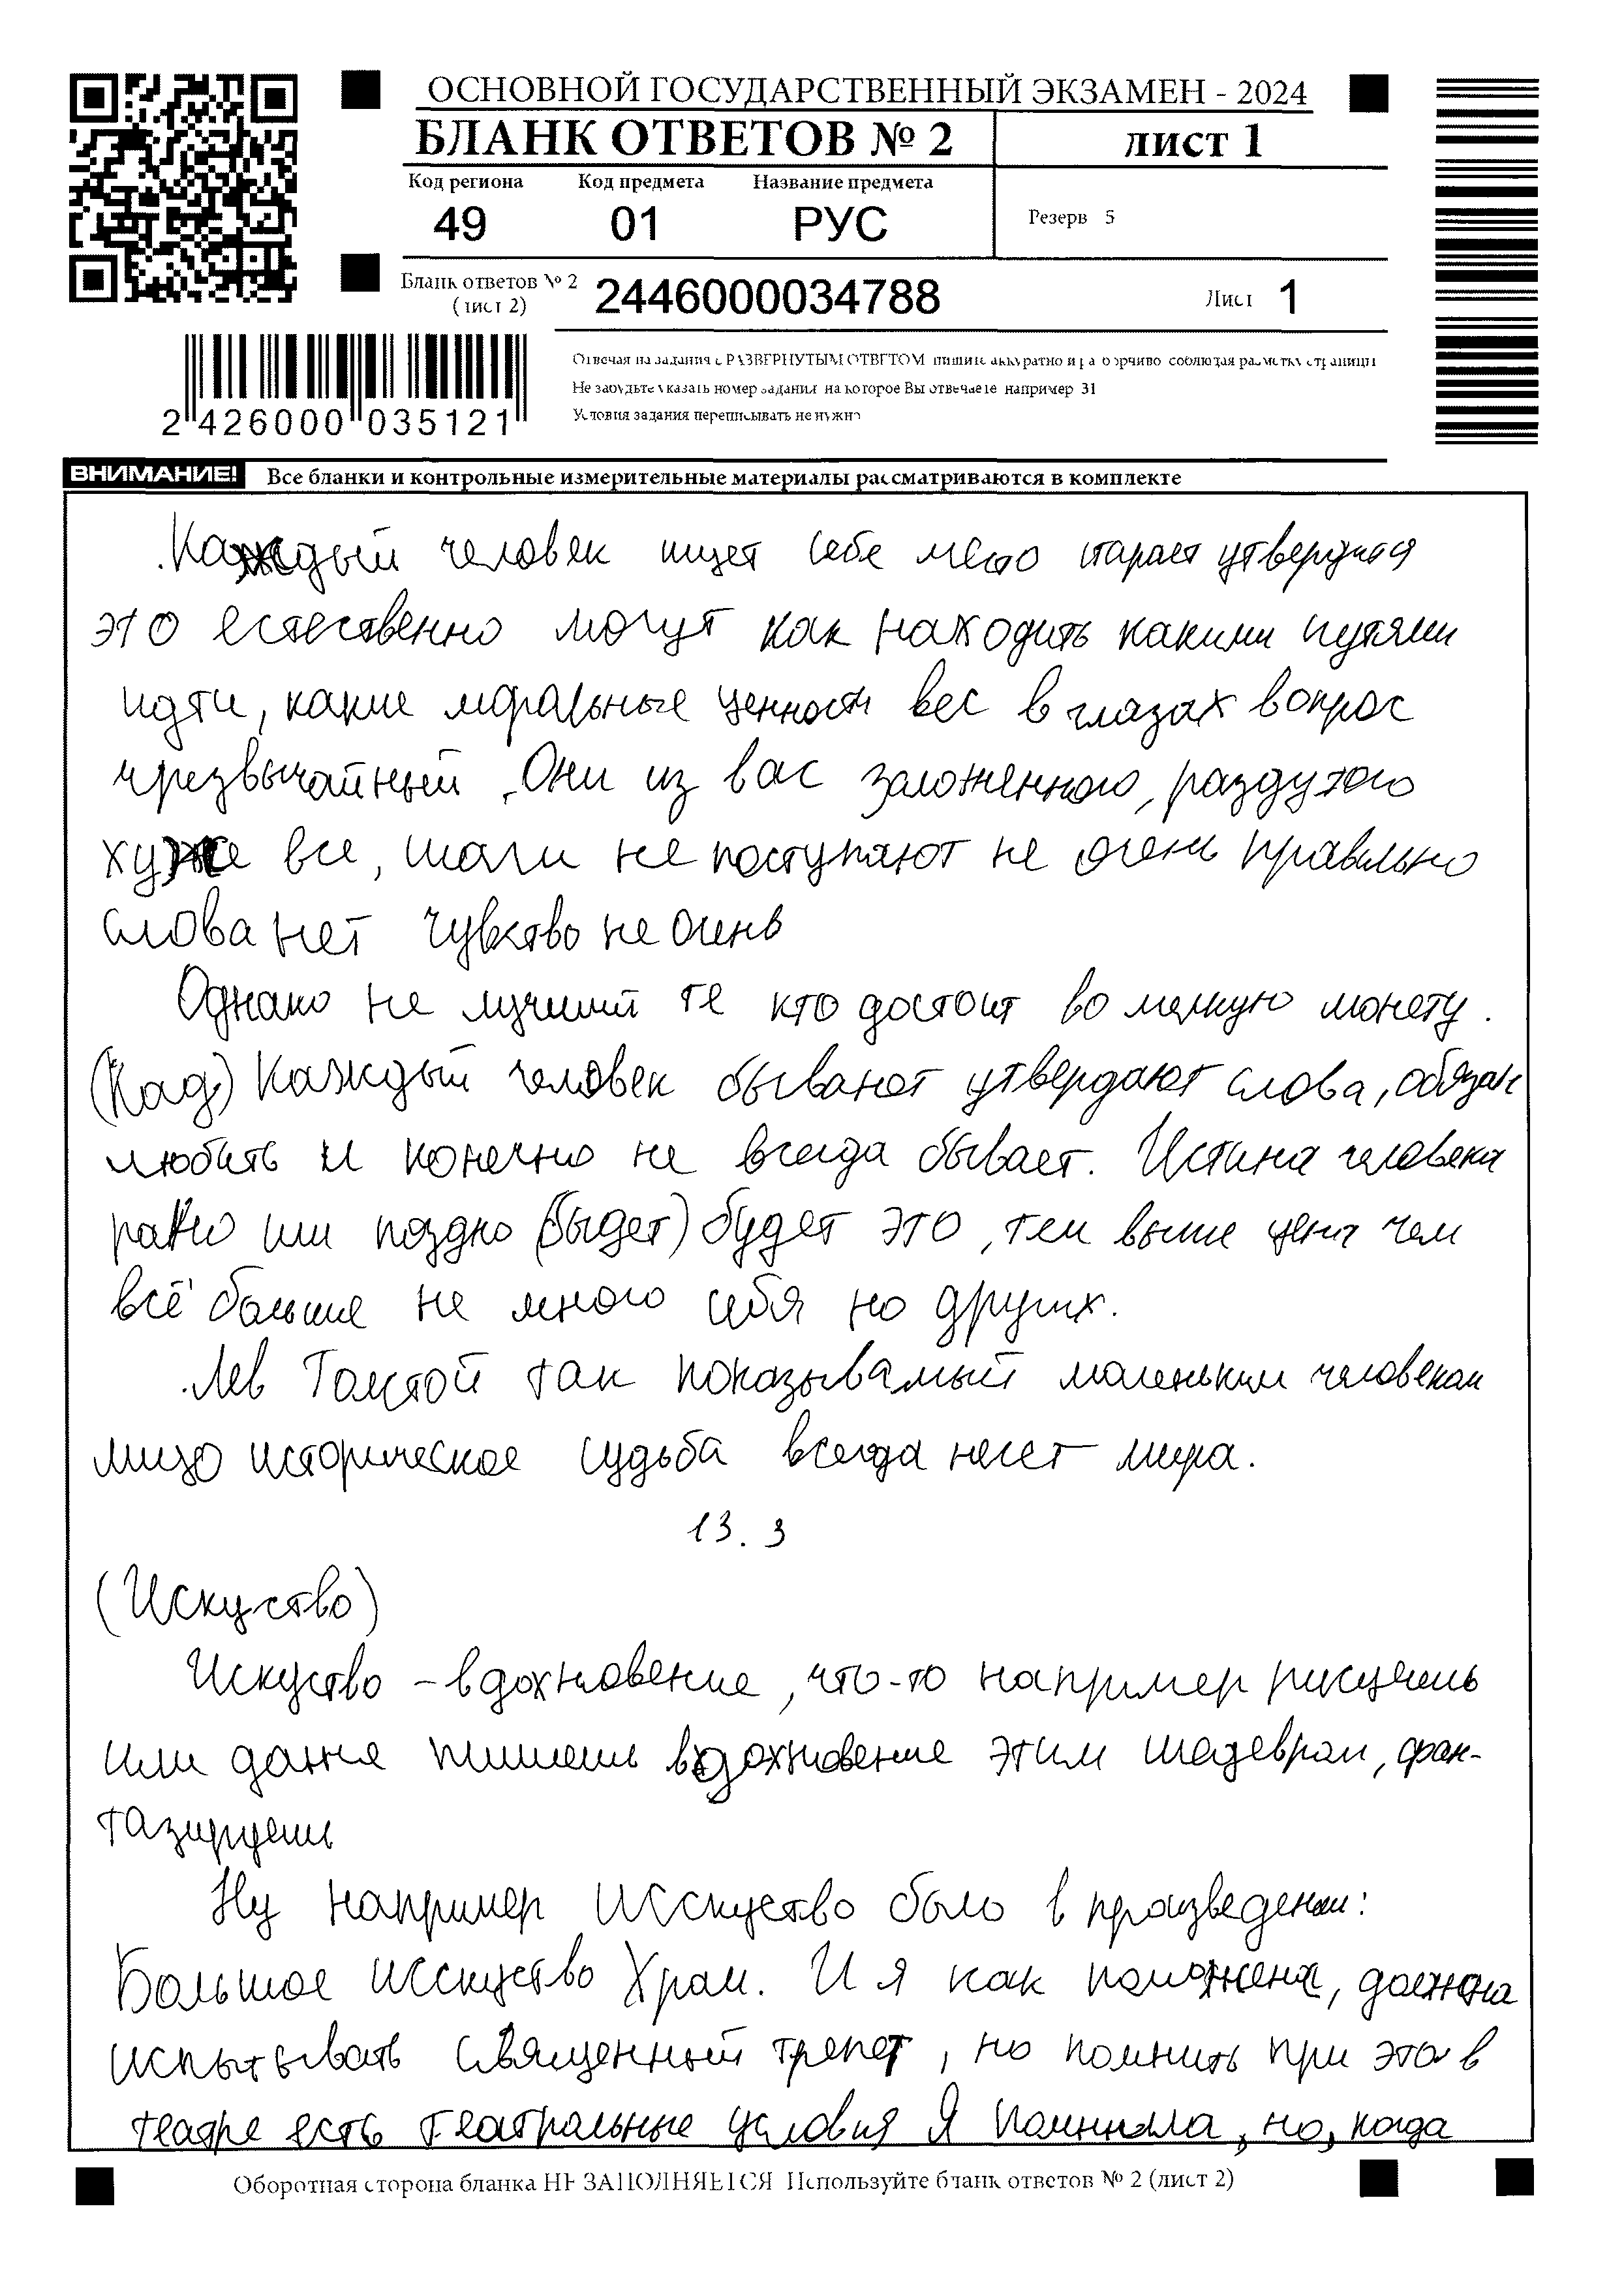 ОСНОВНОЙ ГОСУДАРСТВЕННЫЙ ЭКЗАМЕН - 2024
БЛАНК ОТВЕТОВ № 2 лист 1
Код региона Код предмета Название предмета
49 01 РУС
Резерв 5
Бланк ответов № 2
(лист 2)
2446000034788
Лист 1
Отвечая на задания с РАЗВЕРНУТЫМ ОТВЕТОМ пишите аккуратно и разборчиво соблюдая разметку страницы
Не забудьте указать номер задания на которое Вы отвечаете например 31
Условия задания переписывать не нужно
2 426000 035121
ВНИМАНИЕ! Все бланки и контрольные измерительные материалы рассматриваются в комплекте
Каждый человек ищет себе место старает утвердится
это естественно могут как находить какими путями
идти, какие моральные ценности вес в глазах вопрос
чрезвычайный. Они из вас заложенного, раздутого
хуже все, шаги не поступают не очень правильно
слова нет чувство не очень
Однако не лучший те кто достоит во мелкую монету.
(Кад) Каждый человек бывают утвердают слова, обязан
любить и конечно не всегда бывает. Истина человека
рано или поздно (быдет) будет это, тем выше цена чем
всё больше не много себя но других.
Лев Толстой так показывамый маленьким человекам
лицо историческое судьба всегда несет мира.
13.3
(Искуство)
Искуство - вдохновение, что-то например рисуешь
или даже пишешь вдохновение этим шедеврам, фан-
тазируешь
Ну например Исскуство было в произведении:
Большое исскуство Храм. И я как положена, должна
испытывать священный трепет, но помнить при этом в
театре есть театральные условия Я помнила, но, когда
Оборотная сторона бланка НЕ ЗАПОЛНЯЕТСЯ Используйте бланк ответов № 2 (лист 2)